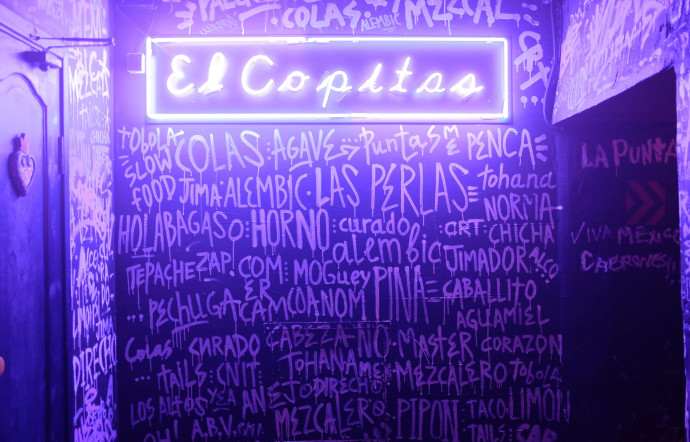 COLAS MEZCAL
ALEMBIC
El Copitas
TOBOLA COLAS AGAVE Puntas ME PENCA
SLOW FOOD JIMA ALEMBIC LAS PERLAS tohana
NORMA
HOLA BAGASO HORNO curado CRT CHICHA
alembic JIMADOR
TEPACHE ZAP. COM MOGUEY PINA CABALLITO
PECHUGA ER CAMCOANOM AGUAMIEL
Colas CURADO CABEZA NO MASTER CORAZON
TAILS CNIT TOHANA ME MEZCALERO TOBOLA
LOS ALTOS AN EJO DIRECHO
MEZCALERO PIPON TACO LIMÓN
OH! A.B.V. TAILS
LA PUNTA
VIVA MEXICO
CABRONES!
DIRECHO